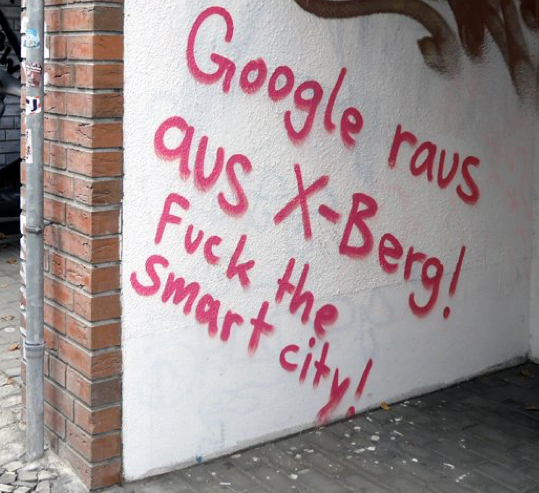 Google raus
aus X-Berg!
Fuck the
smart city!